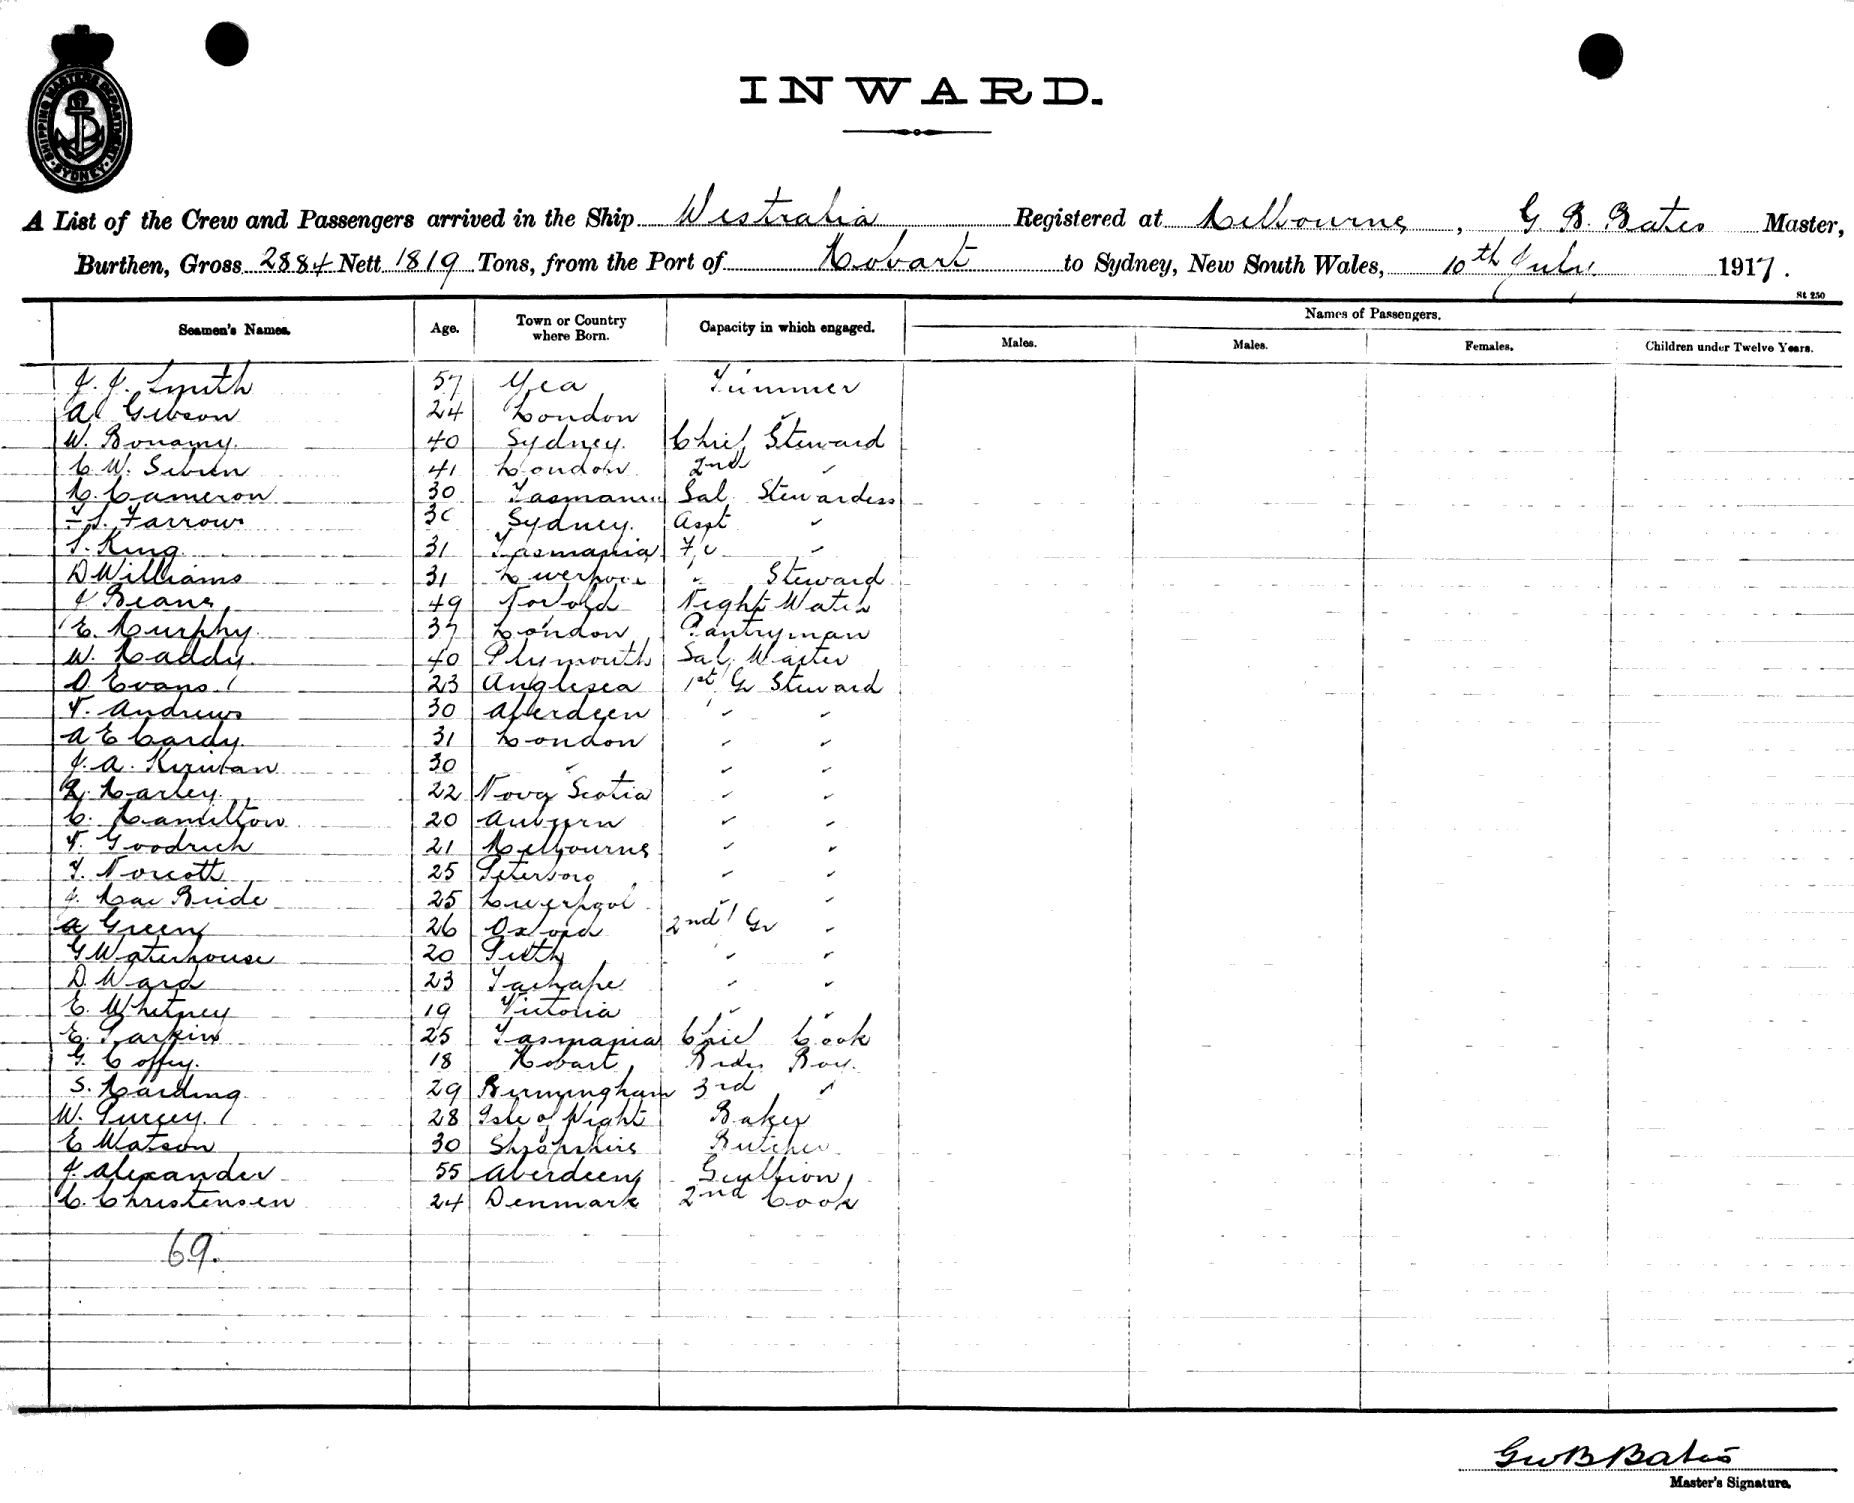 SHIPPING MASTERS DEPARTMENT SYDNEY
INWARD.
A List of the Crew and Passengers arrived in the Ship Westralia Registered at Melbourne, G B. Bates Master,
Burthen, Gross 2884 Nett 1819 Tons, from the Port of Hobart to Sydney, New South Wales, 10th July 1917.
St 250
Seamen's Names. Age. Town or Country where Born. Capacity in which engaged. Names of Passengers.
Males. Males. Females. Children under Twelve Years.
J. J. Smith 57 Yea Trimmer
A. Gibson 24 London "
W. Bonamy. 40 Sydney. Chief Steward
C W. 41 London 2nd "
C. Cameron 30 Tasmania Sal. Stewardess
Farrow 30 Sydney. Asst "
S. King 31 Tasmania F/C "
D Williams 31 Liverpool " Steward
J Beans 49 Night Watch
E. Murphy. 37 London Pantryman
W. 40 Plymouth Sal. Waiter
D Evans 23 Anglesea 1st Gr Steward
T. Andrews 30 Aberdeen " "
A E Cardy. 31 London " "
J. A. Kirwan 30 " " "
Harley. 22 Nova Scotia " "
C. Hamilton 20 Auburn " "
T. Goodrich 21 Melbourne " "
T. Norcott 25 Peterboro " "
J. Mac Bride 25 Liverpool " "
A Green 26 Oxford 2nd Gr "
G Waterhouse 20 Perth " "
D. Ward 23 Taihape " "
E. Whitney 19 Victoria " "
E. Larkin 25 Tasmania Chief Cook
G. Coffey. 18 Hobart Boy.
S. Harding 29 Birmingham 3rd "
W. Pursey. 28 Isle of Wight Baker
E Watson 30 Shropshire Butcher
J. Alexander 55 Aberdeen Scullion
C. Christensen 24 Denmark 2nd Cook
69.
Geo B Bates
Master's Signature.